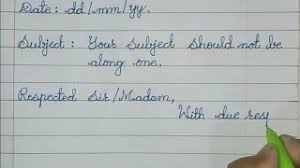 Date: dd/mm/yy.
Subject: Your subject should not be
along one.
Respected Sir/Madam,
With due res